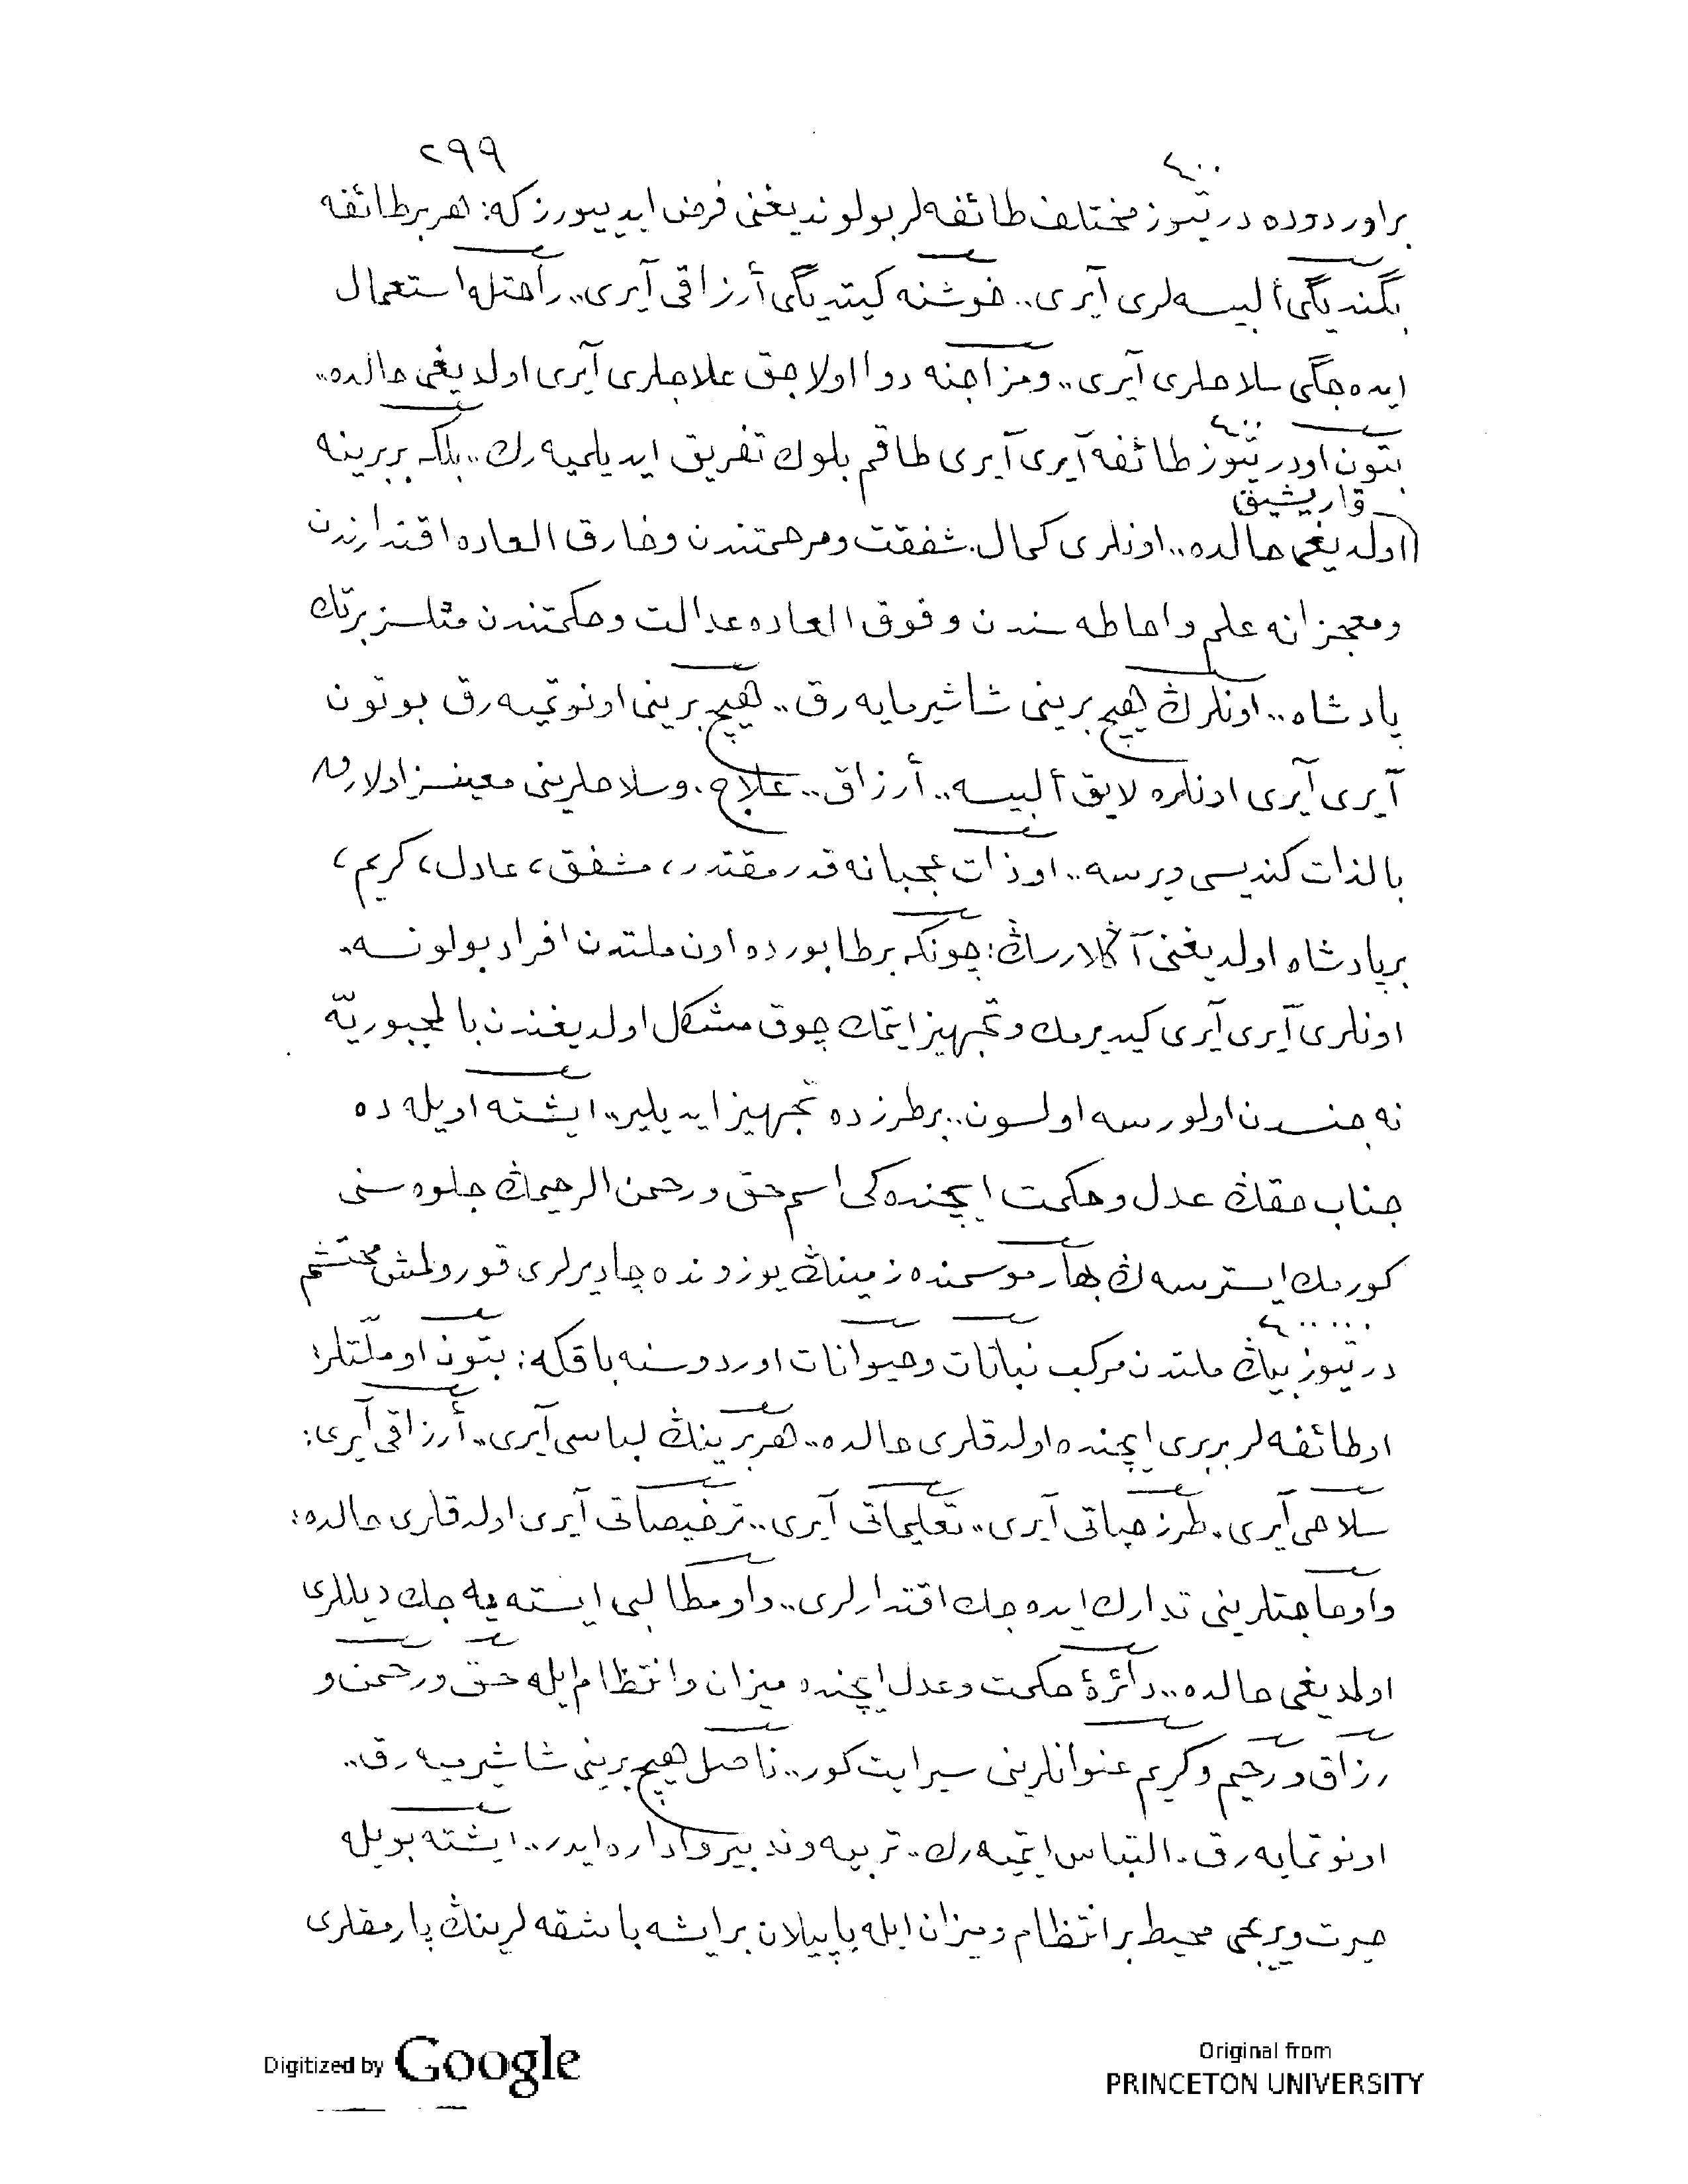 ٢٩٩
٤٠٠
بر اوردوده درتیوز مختلف طائفه‌لر بولوندیغنی فرض ایدییورز که: هر بر طائفه
بگندیگی ألبیسه‌لری آیری.. خوشنه کیتدیگی أرزاقی آیری.. راحتله استعمال
ایده‌جگی سلاحلری آیری.. ومزاجنه دوا اولاجق علاجلری آیری اولدیغی حالده..
٤٠٠
بتون او درتیوز طائفه آیری آیری طاقم بلوك تفریق ایدیلمیه‌رك.. بلکه بربرینه
قاریشیق
اولدیغی حالده.. اونلری کمال شفقت ومرحمتندن وخارق العاده اقتدارندن
ومعجزانه علم واحاطه سندن وفوق العاده عدالت وحکمتندن مثلسز برتك
پادشاه.. اونلرڭ هیچ برینی شاشیرمایه‌رق.. هیچ برینی اونوتمیه‌رق بوتون
آیری آیری اونلره لایق ألبیسه.. أرزاق.. علاج. وسلاحلرینی معینسز اولارق
بالذات کندیسی ویرسه.. او ذات عجبا نه قدر مقتدر، مشفق، عادل، کریم،
بر پادشاه اولدیغنی آڭلارسڭ: چونکه بر طابورده اون ملتدن افراد بولونسه.
اونلری آیری آیری کیدیرمك وتجهیز ایتمك چوق مشکل اولدیغندن بالمجبوریّه
نه جنسدن اولورسه اولسون.. بر طرزده تجهیز ایدیلیر.. ایشته اویله ده
جناب حقڭ عدل وحکمت ایچنده‌کی اسم حق ورحمن الرحیمڭ جلوه سنی
کورمك ایسترسه‌ڭ بهار موسمنده زمینڭ یوزونده چادیرلری قورولمش محتشم
٤٠٠٠٠٠
درتیوز بیڭ ملتدن مرکب نباتات وحیوانات اوردوسنه باق که: بتون او ملّتلر:
او طائفه‌لر بربری ایچنده اولدقلری حالده.. هر برینڭ لباسی آیری.. أرزاقی آیری:
سلاحی آیری. طرز حیاتی آیری.. تعلیماتی آیری.. ترخیصاتی آیری اولدقلری حالده:
واو حاجتلرینی تدارك ایده‌جك اقتدارلری.. واو مطالبی ایسته‌یه‌جك دیللری
اولمدیغی حالده... دائرهٔ حکمت وعدل ایچنده میزان وانتظام ایله حقّ ورحمن و
رزاق ورحیم وکریم عنوانلرینی سیر ایت کور.. ناصل هیچ برینی شاشیرمیه‌رق..
اونوتمایه‌رق. التباس ایتمیه‌رك. تربیه وتدبیر واداره ایدر.. ایشته بویله
حیرت ویریجی محیط بر انتظام ومیزان ایله یاپیلان بر ایشه باشقه‌لرینڭ پارمقلری
Digitized by Google
Original from
PRINCETON UNIVERSITY